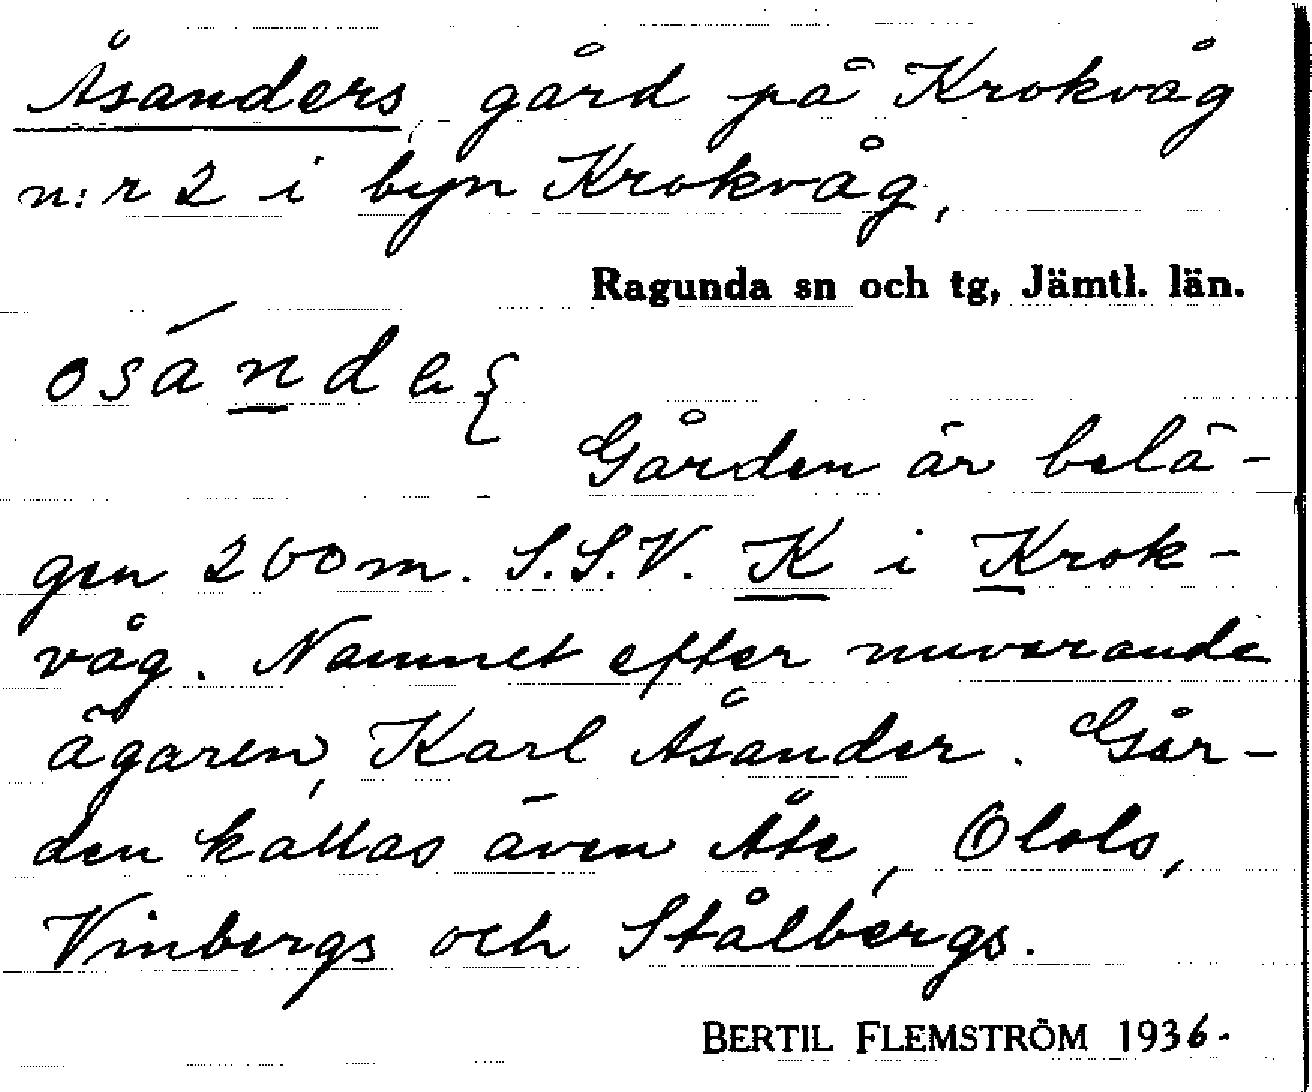 Åsanders, gård på Krokvåg
n:r 2 i byn Krokvåg,
Ragunda sn och tg, Jämtl. län.
Gården är belä-
gen 200 m. S.S.V. K i Krok-
våg. Namnet efter nuvarande
ägaren, Karl Åsander. Går-
den kallas även Åte, Olols,
Vinbergs och Stålbergs.
BERTIL FLEMSTRÖM 1936.